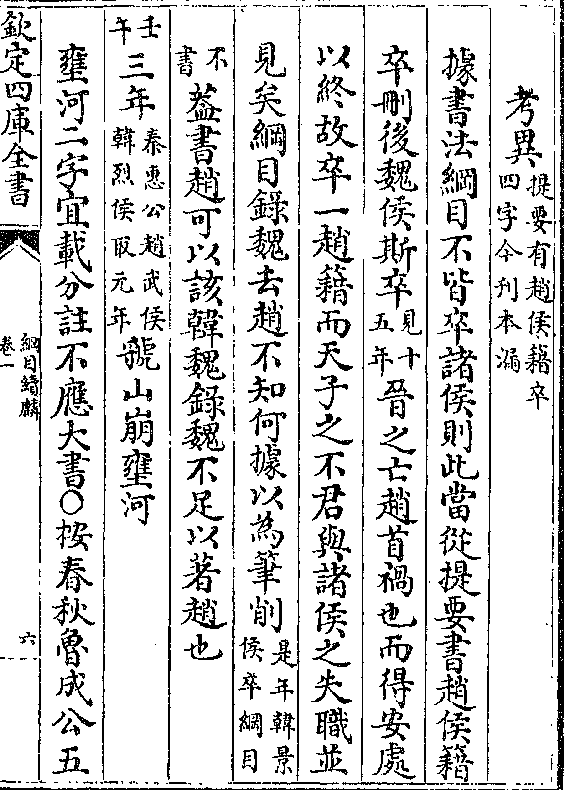 考異提要有趙侯籍卒四字今刊本漏
據書法綱目不皆卒諸侯則此當從提要書趙侯籍
卒刪後魏侯斯卒見十五年晉之亡趙首禍也而得安處
以終故卒一趙籍而天子之不君與諸侯之失職並
見矣綱目錄魏去趙不知何據以為筆削是年韓景侯卒綱目
不書葢書趙可以該韓魏錄魏不足以著趙也
壬午三年秦惠公趙武侯韓烈侯取元年虢山崩壅河
壅河二字宜載分註不應大書○按春秋魯成公五
欽定四庫全書
綱目續麟
卷一
六